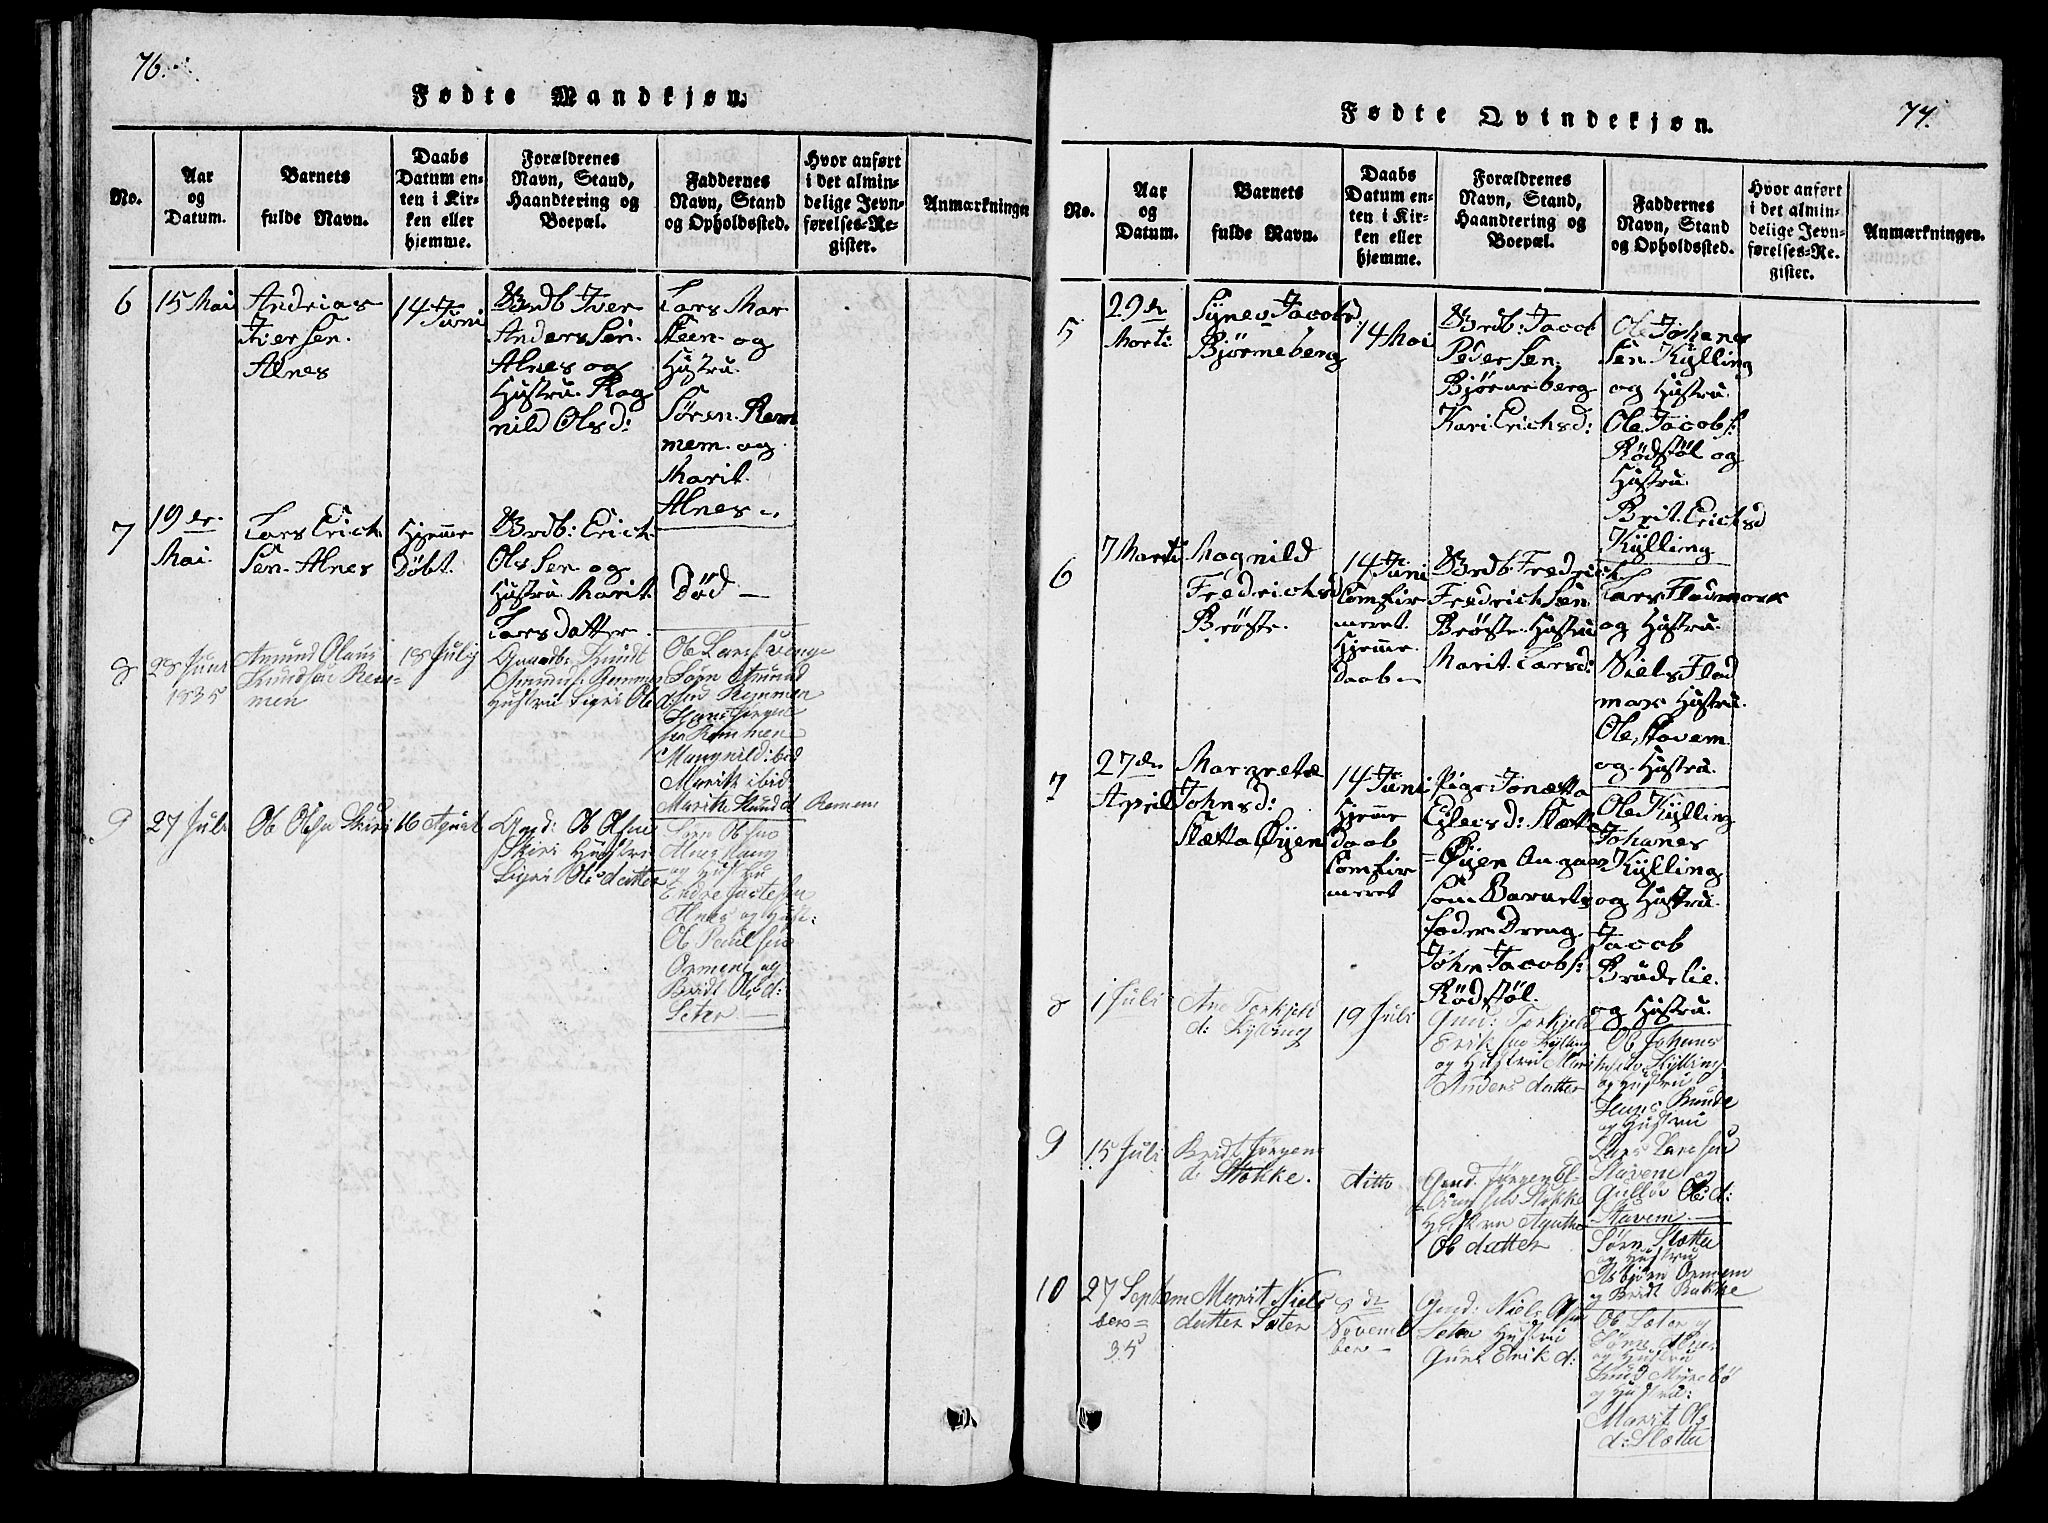 76.
Fødte Mandkjøn.
No.
Aar
og
Datum.
Barnets
fulde Navn.
Daabs
Datum en-
ten i Kir-
ken eller
hjemme.
Forældrenes
Navn, Stand,
Haandtering og
Boepæl.
Faddernes
Navn, Stand
og Opholdssted.
Hvor anført
i det almin-
delige Jevn-
førelses-Re-
gister.
Anmærkninger
6
15 Mai
Andrias
Iversen.
Alnes
14 Juni
Brdb Iver
Anders Sen.
Alnes og
Hustru. Rag
nild Olsd:
Lars Mar
Steen. og
Hustru.
Sören. Rem
mem. og
Marit.
Alnes
7
19de
Mai.
Lars Erich
Sen. Alnes
Hjemme
Döbt.
Brdb: Erich.
Ols Sen og
Hustru. Marit.
Lars Datter.
Död —
8
28 Juni
1835
Amund Olaus
Knudsen Rem-
men
18 Julij
Gaardb: Knudt
Hustru Sigri Ols
Ole Lars
Sørn
Remmen
Mangnild: bid
Marith ibid
Marithe
Remem
9
27 Juli
Ole Olsen Skiri
16 Agust
Gmd: Ole Olsen
Skiri Hustru
Sigri Olsdatter
Sørn Olsen
Alnes
og Hustru
Endre
Alnes og Hust:
Ole Paulsen
Ormem og
Bridt Ols d:
Seter —
Fødte Qvindekjøn.
77.
No.
Aar
og
Datum.
Barnets
fulde Navn.
Daabs
Datum en-
ten i Kir-
ken eller
hjemme.
Forældrenes
Navn, Stand,
Haandtering og
Boepæl.
Faddernes
Navn, Stand
og Opholdssted.
Hvor anført
i det almin-
delige Jevn-
førelses-Re-
gister.
Anmærkninger.
5
29de
Marti:
Synev Jacobsd:
Bjørneberg
14 Mai
Brdb: Jacob
Peder Sen.
Bjørneberg
Kari Erichsd:
Ole Johanes
Sen. Kylling
og Hustru.
Ole. Jacobs:
Rödstöl og
Hustru.
Brit. Erichsd
Kylling
6
7 Marti
Magnild
Fredrichsd
Brøste.
14 Juni
Comfir
meret.
Hjemme.
Daab —
Brdb Fredrich
Fredrich Sen
Brøste. Hustru
Marit. Larsd:
Lars Fladmark
og Hustru.
Niels Flad
mark Hustru.
Ole, Stavem
og. Hustru.
7
27de
April
Margrete
Johnsd:
Slætta Øyen
14 Juni
Hjemme
Daab
Comfir
meret
Pige Jonetta
Slætt
Øyen Angaar
som Barnets
Fader Dreng.
John Jacobs:
Rödstöl.
Ole Kylling
Johanes
Kylling
og Hustru.
Jacob
Brüdelie.
og Hustru.
8
1 Juli
Ane Torkjels
d: Kylling
19 Juli
Gmd: Torkjeld
Erik sen Kylling
og Hustru Marit
Anders datter
Ole Johans
sen Kylling
og Hustru
Hans Bunde
og Hustru
Lars Larssen
Stavem og
Gullov Ols: d:
Stavem —
9
15 Juli
Bridt Jörgen
d: Stokke.
ditto
Gmd. Jörgen
Stokke
Hustru Agatha
Ole datter
Sørn Slætta
og Hustru
Asbjörn Ormem
og Bridt Bakke
10
27 Septem
ber =
35
Marit Niels
datter Seter
8de
Novem
ber —
Gmd: Niels
Seter Hustru
Guri Erik d:
Ole Seter og
Sørn Alnes
og Hustru
Knud Myrebö
og Hustru:
Marit Ols
d: Slætta